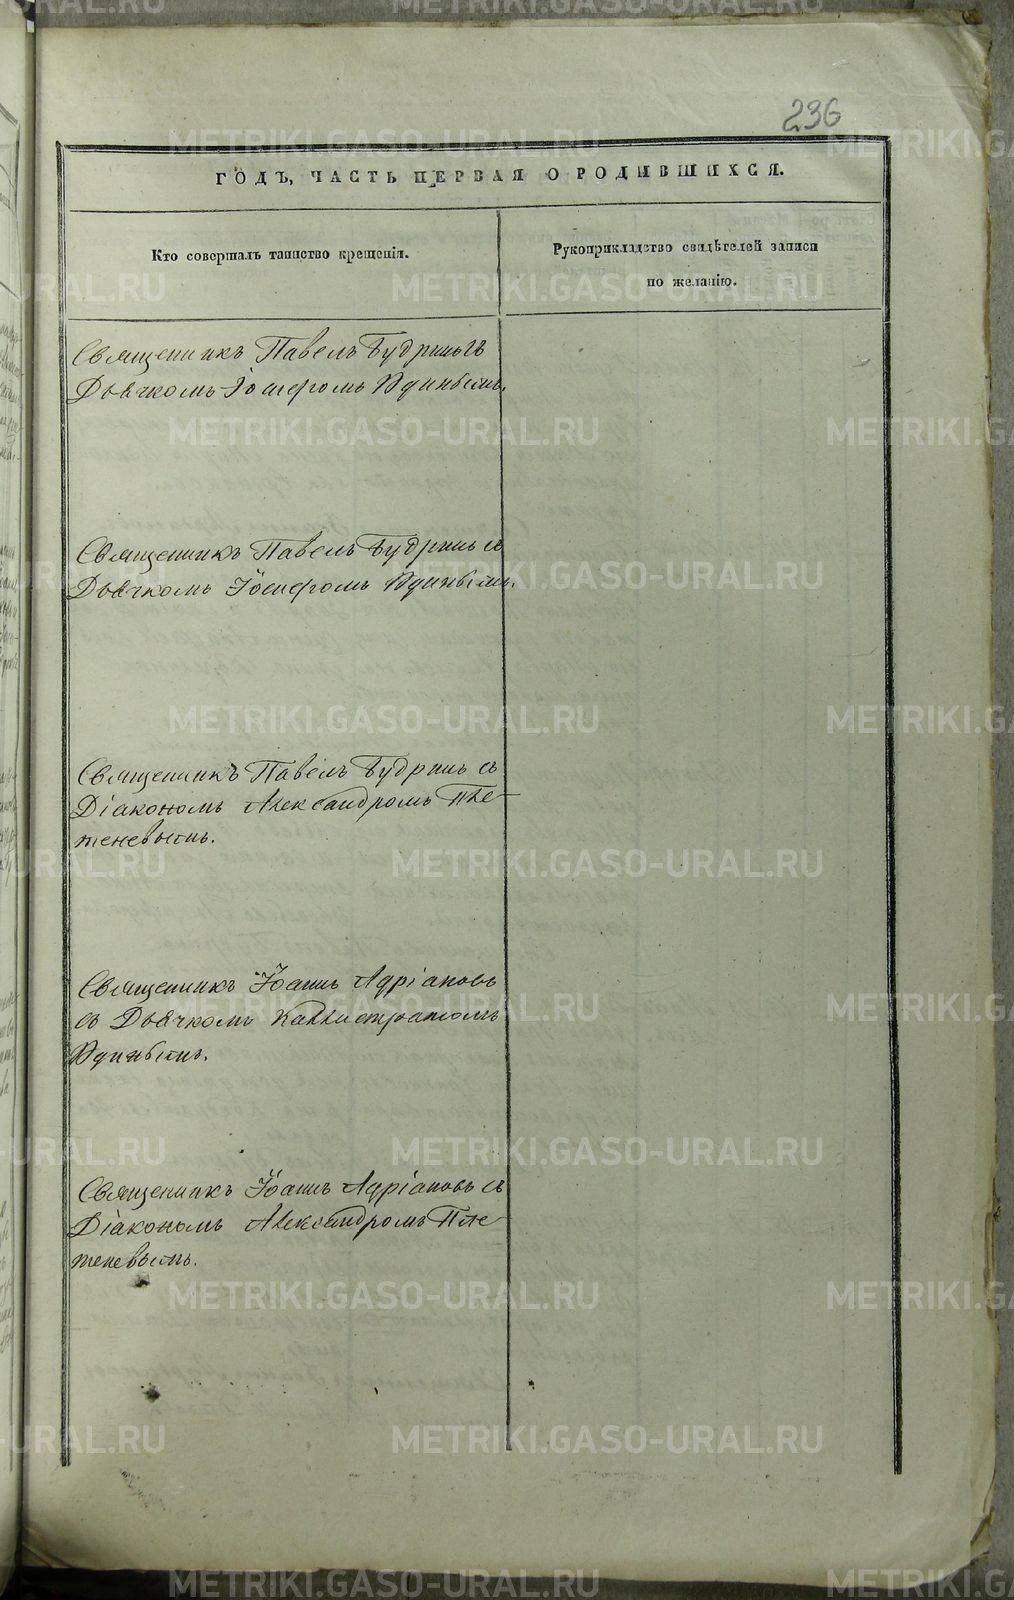 236
ГОДЪ, ЧАСТЬ ПЕРВАЯ О РОДИВШИХСЯ.
Кто совершалъ таинство крещенія.
Рукоприкладство свидѣтелей записи
по желанію.
Священникъ Павелъ Будринъ съ
Дьячкомъ Іосифомъ Удинымъ.
Священникъ Павелъ Будринъ съ
Дьячкомъ Іосифомъ Удинымъ.
Священникъ Павелъ Будринъ съ
Діакономъ Александромъ Пле-
теневымъ.
Священникъ Іоаннъ Адріановъ
съ Дьячкомъ Каллистратомъ
Удинымъ.
Священникъ Іоаннъ Адріановъ съ
Діакономъ Александромъ Пле-
теневымъ.
METRIKI.GASO-URAL.RU